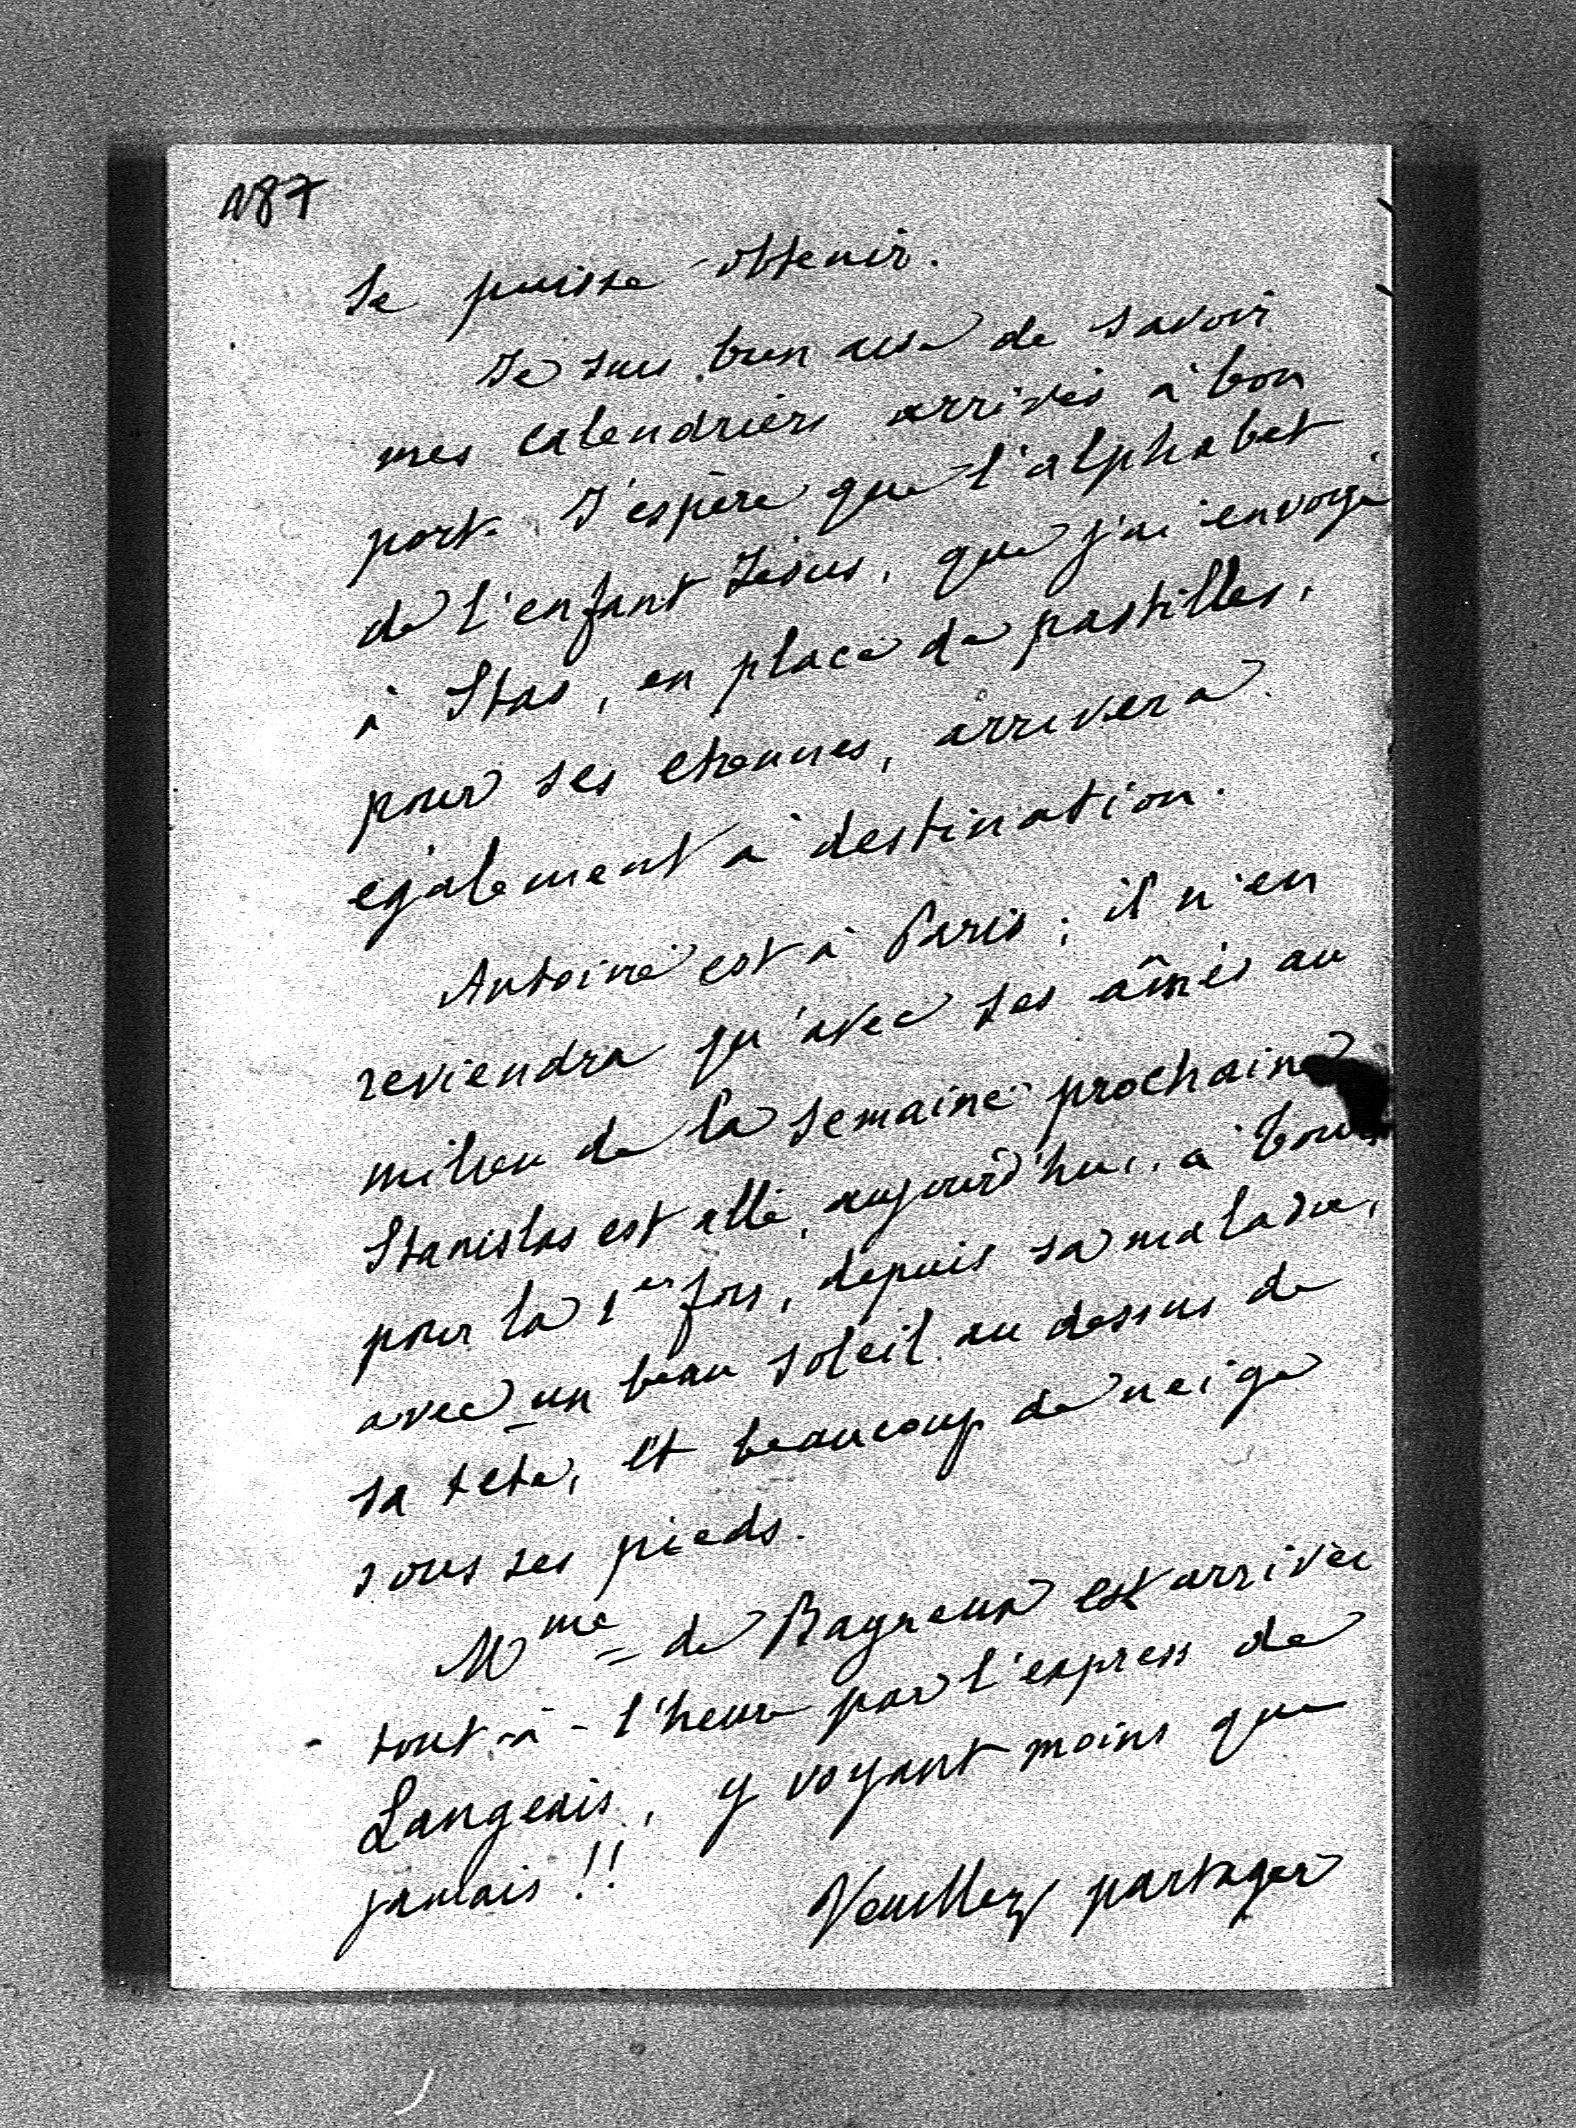 187
se puisse obtenir.
Je suis bien aise de savoir
mes calendriers arrivés à bon
port. J'espère que l'alphabet
de l'enfant Jésus, que j'ai envoyé
à Stas, en place de pastilles,
pour ses étrennes, arrivera
également à destination.
Antoine est à Paris; il n'en
reviendra qu'avec ses aînés au
milieu de la semaine prochaine
Stanislas est allé, aujourd'hui, à
pour la 1er fois, depuis sa maladie,
avec un beau soleil au dessus de
sa tête, et beaucoup de neige
sous ses pieds.
Mme de Bagneux est arrivée
tout-à-l'heure par l'express de
Langeais, y voyant moins que
jamais!!
Veuillez partager